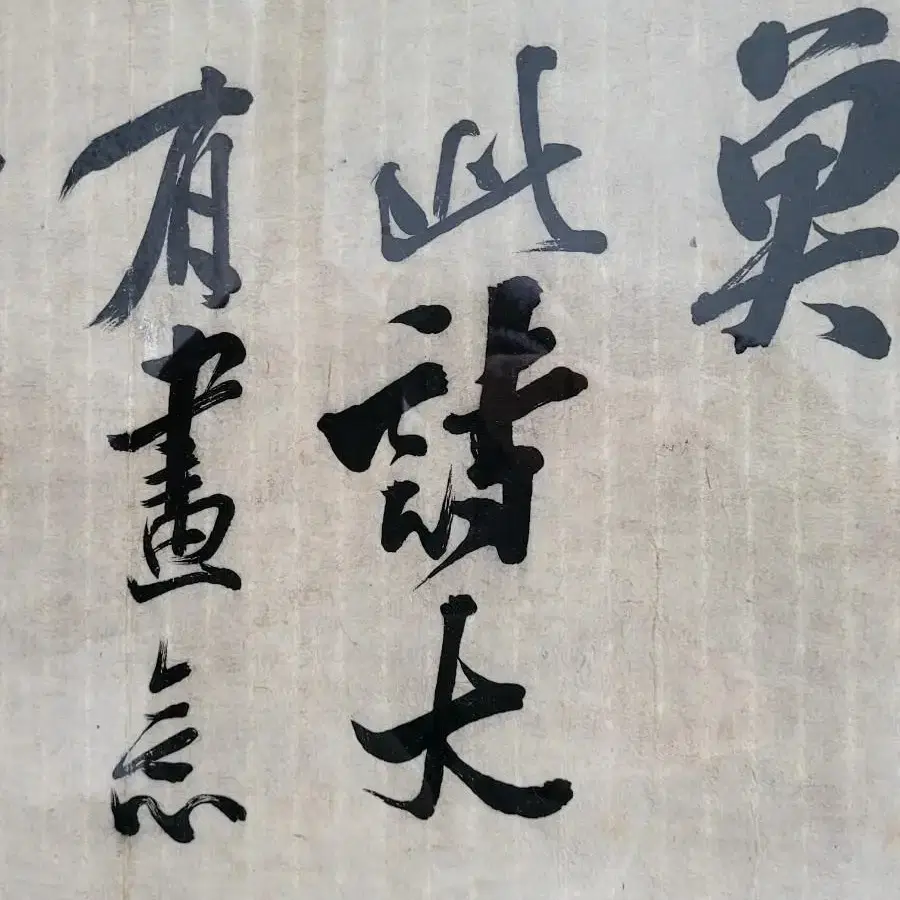 此詩大
有畫意